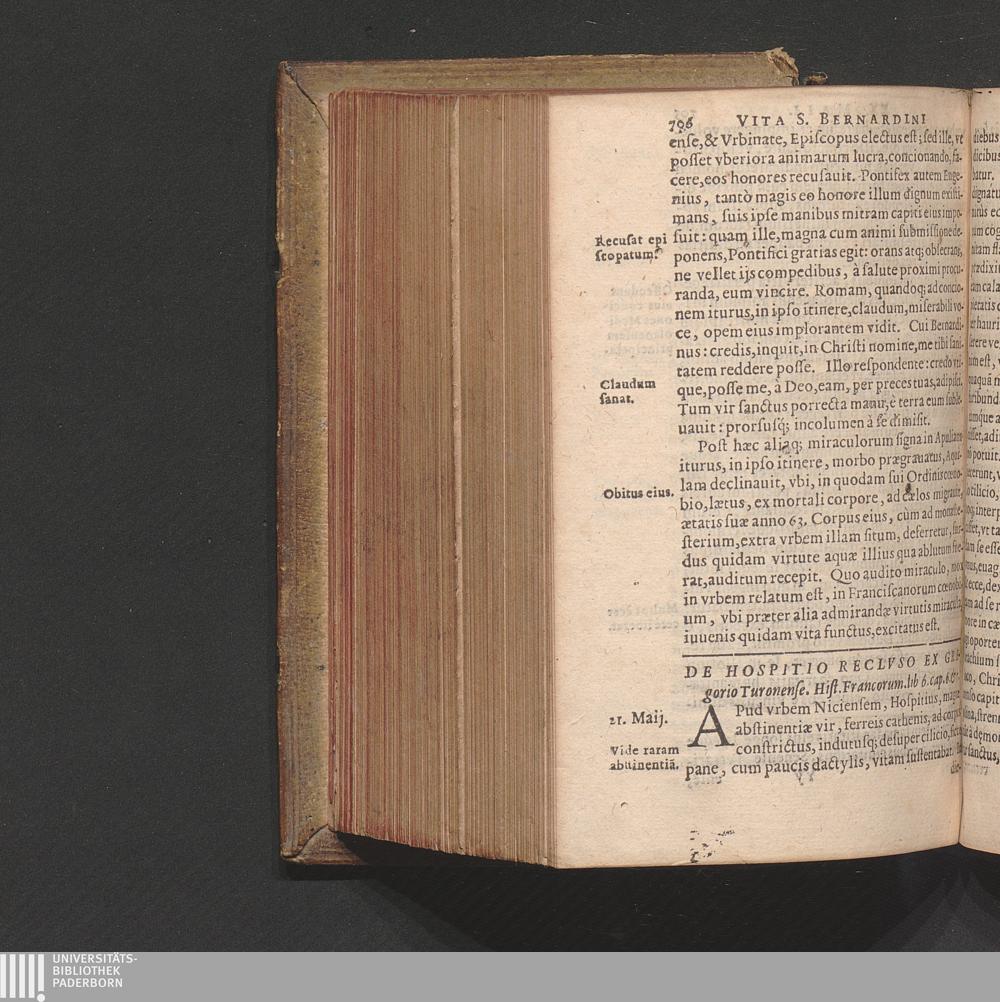 706 VITA S. BERNARDINI
enſe,& Vrbinate, Epiſcopus electus eſt; ſed ille, vt
poſſet vberiora animarum lucra,concionando, fa-
cere,eos honores recuſauit. Pontifex autem Euge-
nius, tantò magis eo honore illum dignum exiſti-
mans, ſuis ipſe manibus mitram capiti eius impo-
Recuſat epi
ſcopatum.
ſuit: quam ille,magna cum animi ſubmiſſione de-
ponens,Pontifici gratias egit: orans atq; obſecrans,
ne vellet ijs compedibus, à ſalute proximi procu-
randa, eum vincire. Romam, quandoq; ad concio-
nem iturus,in ipſo itinere,claudum,miſerabili vo-
ce, opem eius implorantem vidit. Cui Bernardi-
nus: credis,inquit,in Chriſti nomine,me tibi ſani-
tatem reddere poſſe. Illo reſpondente: credo vti-
Claudum
ſanat.
que,poſſe me, à Deo,eam, per preces tuas,adipiſci.
Tum vir ſanctus porrecta manu,e terra eum ſuble-
uauit: prorſusq; incolumen à ſe dimiſit.
Poſt hæc aliaq; miraculorum ſigna in Apuliam
iturus, in ipſo itinere, morbo prægrauatus, Aqui-
lam declinauit, vbi, in quodam ſui Ordinis cœno-
Obitus eius.
bio,lætus, ex mortali corpore, ad cælos migrauit,
ætatis ſuæ anno 63. Corpus eius, cùm ad monaſte-
ſterium,extra vrbem illam ſitum, deferretur, ſur-
dus quidam virtute aquæ illius qua ablutum fue-
rat,auditum recepit. Quo audito miraculo, mox
in vrbem relatum eſt, in Franciſcanorum cœnobi-
um, vbi præter alia admirandæ virtutis miracula,
iuuenis quidam vita functus,excitatus eſt.
DE HOSPITIO RECLVSO EX GRE-
gorio Turonenſe. Hiſt. Francorum.lib 6.cap.6.
21. Maij.
APud vrbem Nicienſem, Hoſpitius, magnæ
abſtinentiæ vir, ferreis cathenis, ad corpus
Vide raram
abſtinentiã.
conſtrictus, indutuſq; deſuper cilicio,ſicco
pane, cum paucis dactylis, vitam ſuſtentabat.
die-
UNIVERSITÄTS-
BIBLIOTHEK
PADERBORN